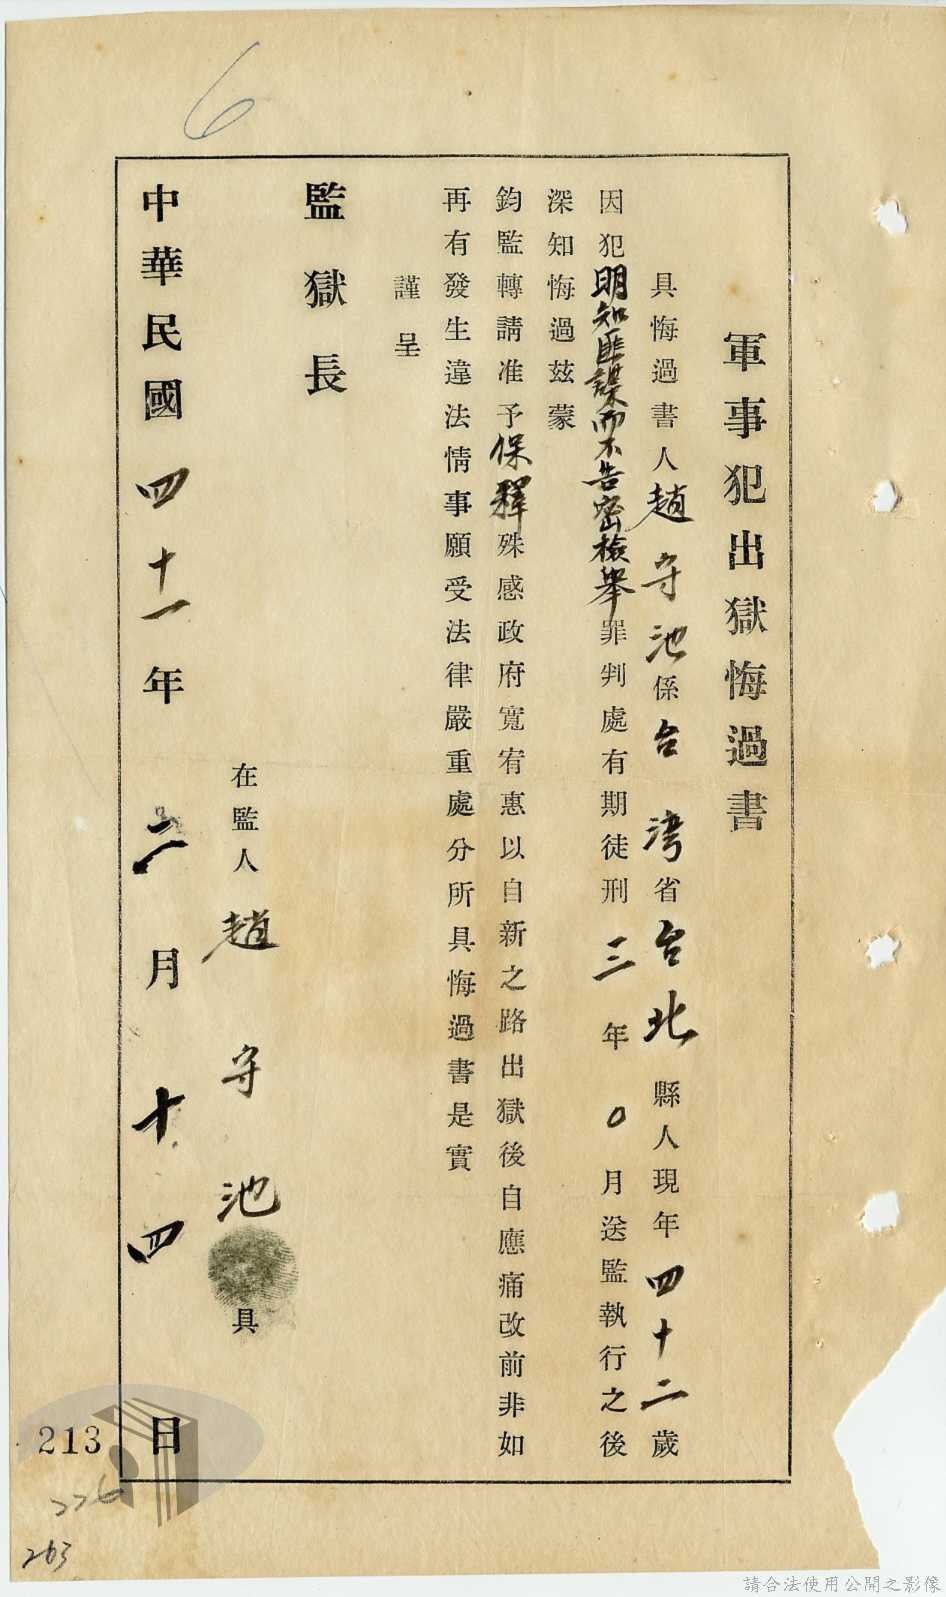 6
軍事犯出獄悔過書
具悔過書人趙守池係台灣省台北縣人現年四十二歲
因犯明知匪諜而不告密檢舉罪判處有期徒刑三年0月送監執行之後
深知悔過玆蒙
鈞監轉請准予保釋殊感政府寬宥惠以自新之路出獄後自應痛改前非如
再有發生違法情事願受法律嚴重處分所具悔過書是實
謹呈
監獄長
在監人趙守池具
中華民國四十一年二月十四日
213
226
263
請合法使用公開之影像